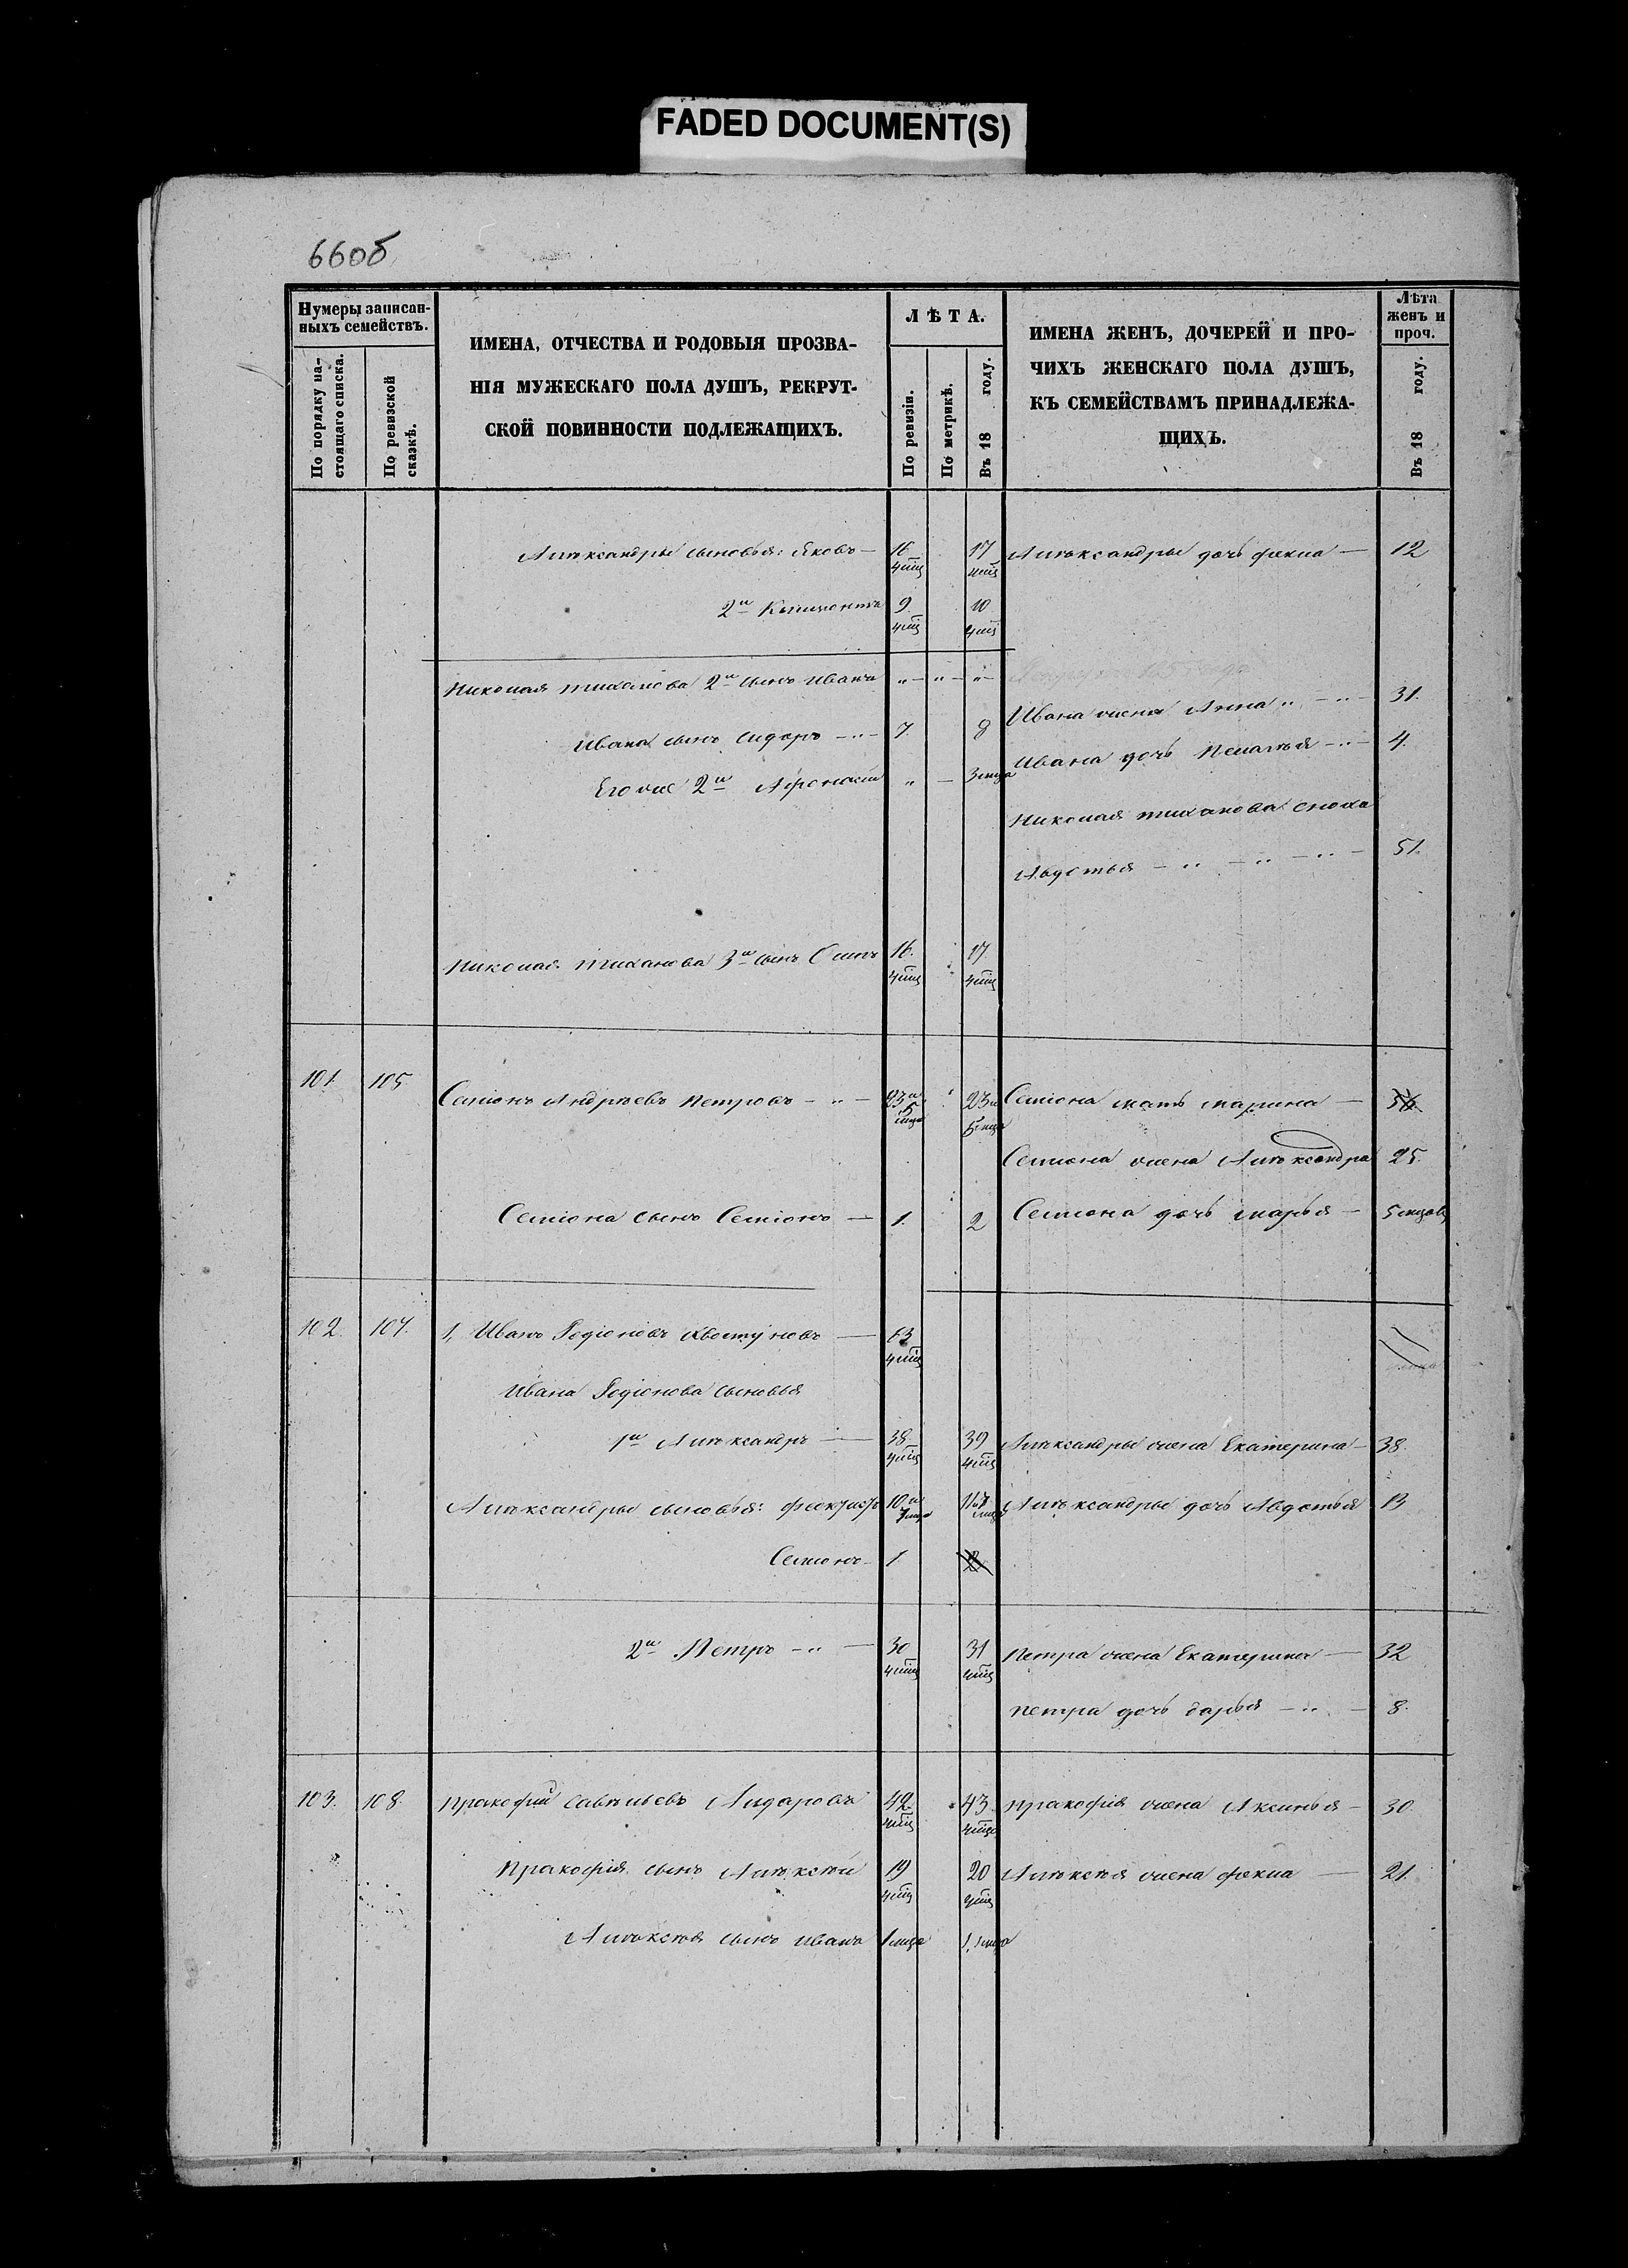 FADED DOCUMENT(S)
660б
Нумеры записан-
ныхъ семействъ.
По порядку на-
стоящаго списка.
По ревизской
сказкѣ.
ИМЕНА, ОТЧЕСТВА И РОДОВЫЯ ПРОЗВА-
НІЯ МУЖЕСКАГО ПОЛА ДУШЪ, РЕКРУТ-
СКОЙ ПОВИННОСТИ ПОДЛЕЖАЩИХЪ.
ЛѢТА.
По ревизіи.
По метрикѣ.
Въ 18 году.
ИМЕНА ЖЕНЪ, ДОЧЕРЕЙ И ПРО-
ЧИХЪ ЖЕНСКАГО ПОЛА ДУШЪ,
КЪ СЕМЕЙСТВАМЪ ПРИНАДЛЕЖА-
ЩИХЪ.
Лѣта
женъ и
проч.
Въ 18 году.
Алѣксандры сыновья: Яковъ — 16 4мц 17 4мц Алѣксандры дочь Фекла — 12
2й Климонтъ 9 4мц 10 4мц
Николая Тиханова 2й сынъ Иванъ „ — „ — „ —
Ивана жена Анна „ — „ — 31.
Ивана сынъ Сидоръ — „ — 7. 8
Ивана дочь Пелагѣя — „ — 4.
Его же 2й Афонасий „ — 3 мца
Николая Тиханова сноха
Авдотья — „ — „ — „ — 51.
Николая Тиханова 3й сынъ Осипъ 16. 4мц 17. 4мц
101. 105 Семіонъ Андрѣевъ Петровъ — „ — 23 и 5 мца 23 и 5 мца Семіона мать Марина —
Семіона жена Алѣксандра 25.
Семіона сынъ Семіонъ — 1. 2 Семіона дочь Марья — 5 мцов
102. 107. 1, Иванъ Родіоновъ Хвостуновъ — 63 4мц
Ивана Родіонова сыновья
1й Алѣксандръ — 38 4мц 39 4мц Алѣксандры жена Екатерина — 38.
Алѣксандры сыновья: Феоктистъ 10 и 7 мца 11 и 7 мца Алѣксандры дочь Авдотья 13
Семіонъ — 1
2й Петръ — „ — 30 4мц 31 4мц Петра жена Екатерина — 32
Петра дочь Дарья — „ — 8.
103. 108. Пракофий Савѣльевъ Андаровъ 42 4мц 43 4мц Пракофія жена Аксинья — 30.
Пракофія сынъ Алѣксѣй 19 4мц 20 4мц Алѣксѣя жена Фекла — 21.
Алѣксѣя сынъ Иванъ 1 мца 1, 1 мца